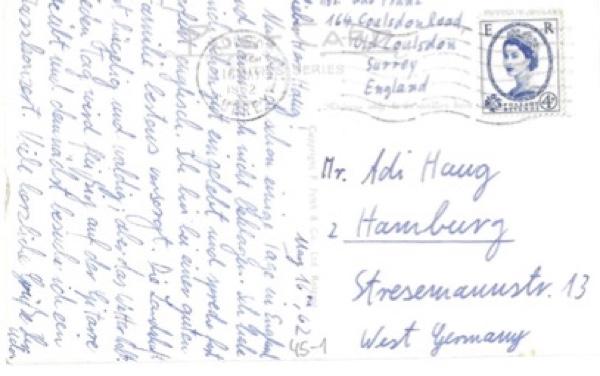 164 Coulsdon Road,
Old Coulsdon
Surrey
England
E R
POSTAGE REVENUE
4D
SERIES
May 16th 62
Nun bin ich schon einige Tage in England
und mich nicht beklagen. Ich habe
mich schon gut eingelebt und spreche fast
perfekt englisch. Ich bin bei einer guten
Familie bestens versorgt. Die Landschaft
ist hügelig und waldig; aber das Wetter
jeden Tag wird fleißig auf der Gitarre
geübt und demnächst besuche ich ein
Jazzkonzert. Viele herzliche Grüße
Mr. Adi Haug
2 Hamburg
Stresemannstr. 13
West Germany
45-1